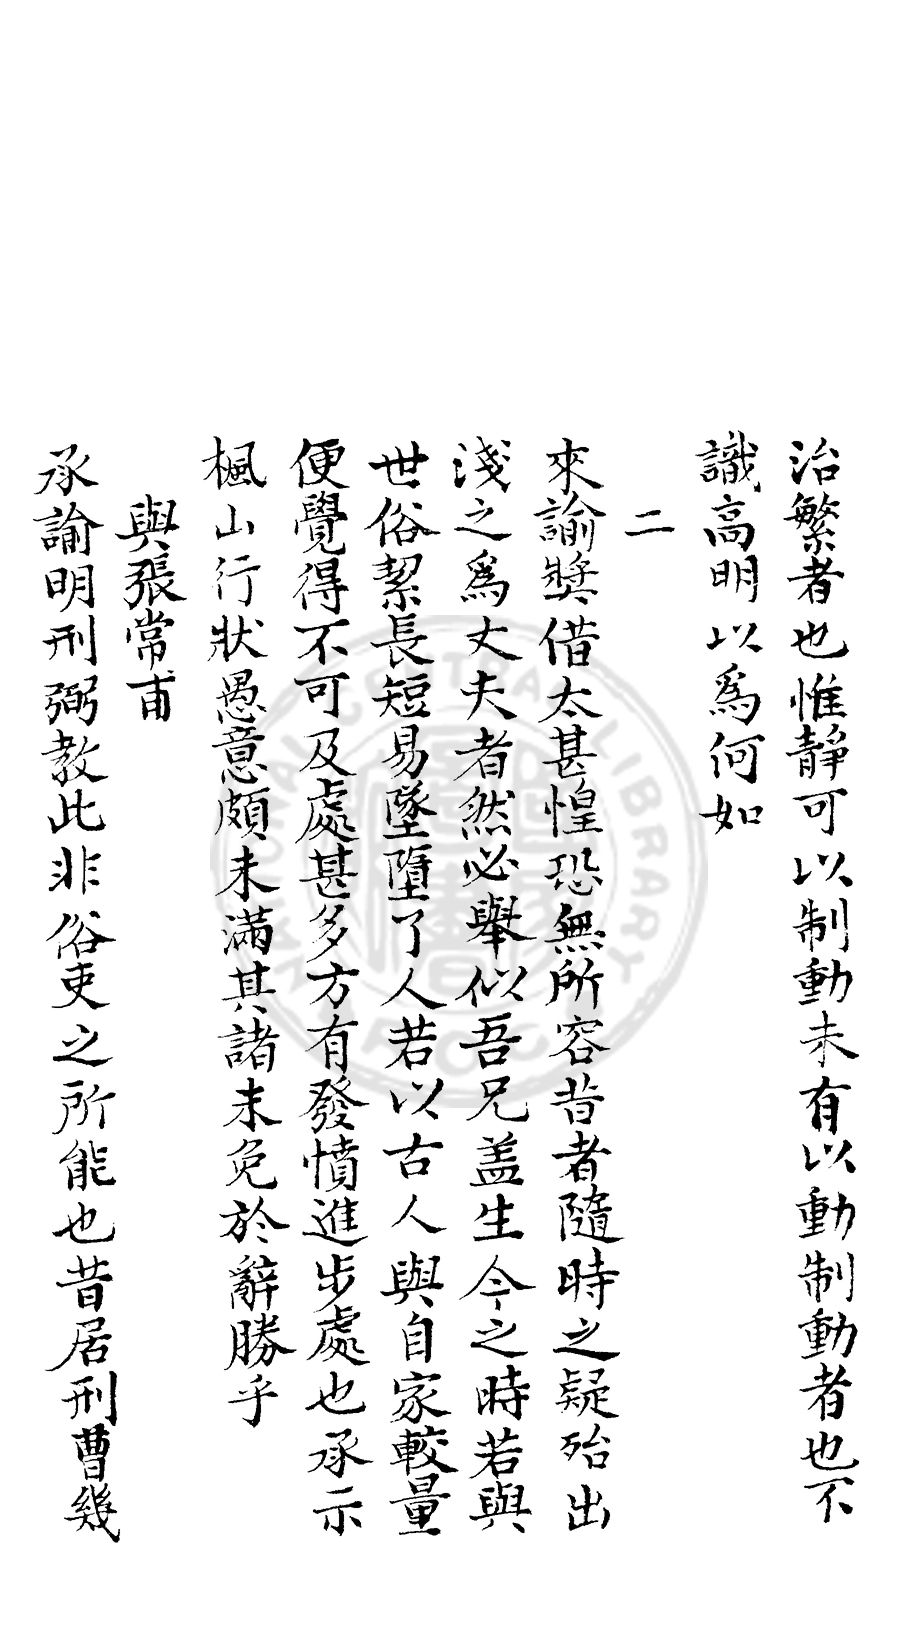 治繁者也惟靜可以制動未有以動制動者也不
識高明以為何如
二
來諭奬借太甚惶恐無所容昔者隨時之疑殆出
淺之為丈夫者然必舉似吾兄盖生今之時若與
世俗絜長短易墜墮了人若以古人與自家較量
便覺得不可及處甚多方有發憤進步處也承示
楓山行狀愚意頗未滿其諸未免於辭勝乎
與張常甫
承諭明刑弼教此非俗吏之所能也昔居刑曹幾
NATIONAL CENTRAL LIBRARY